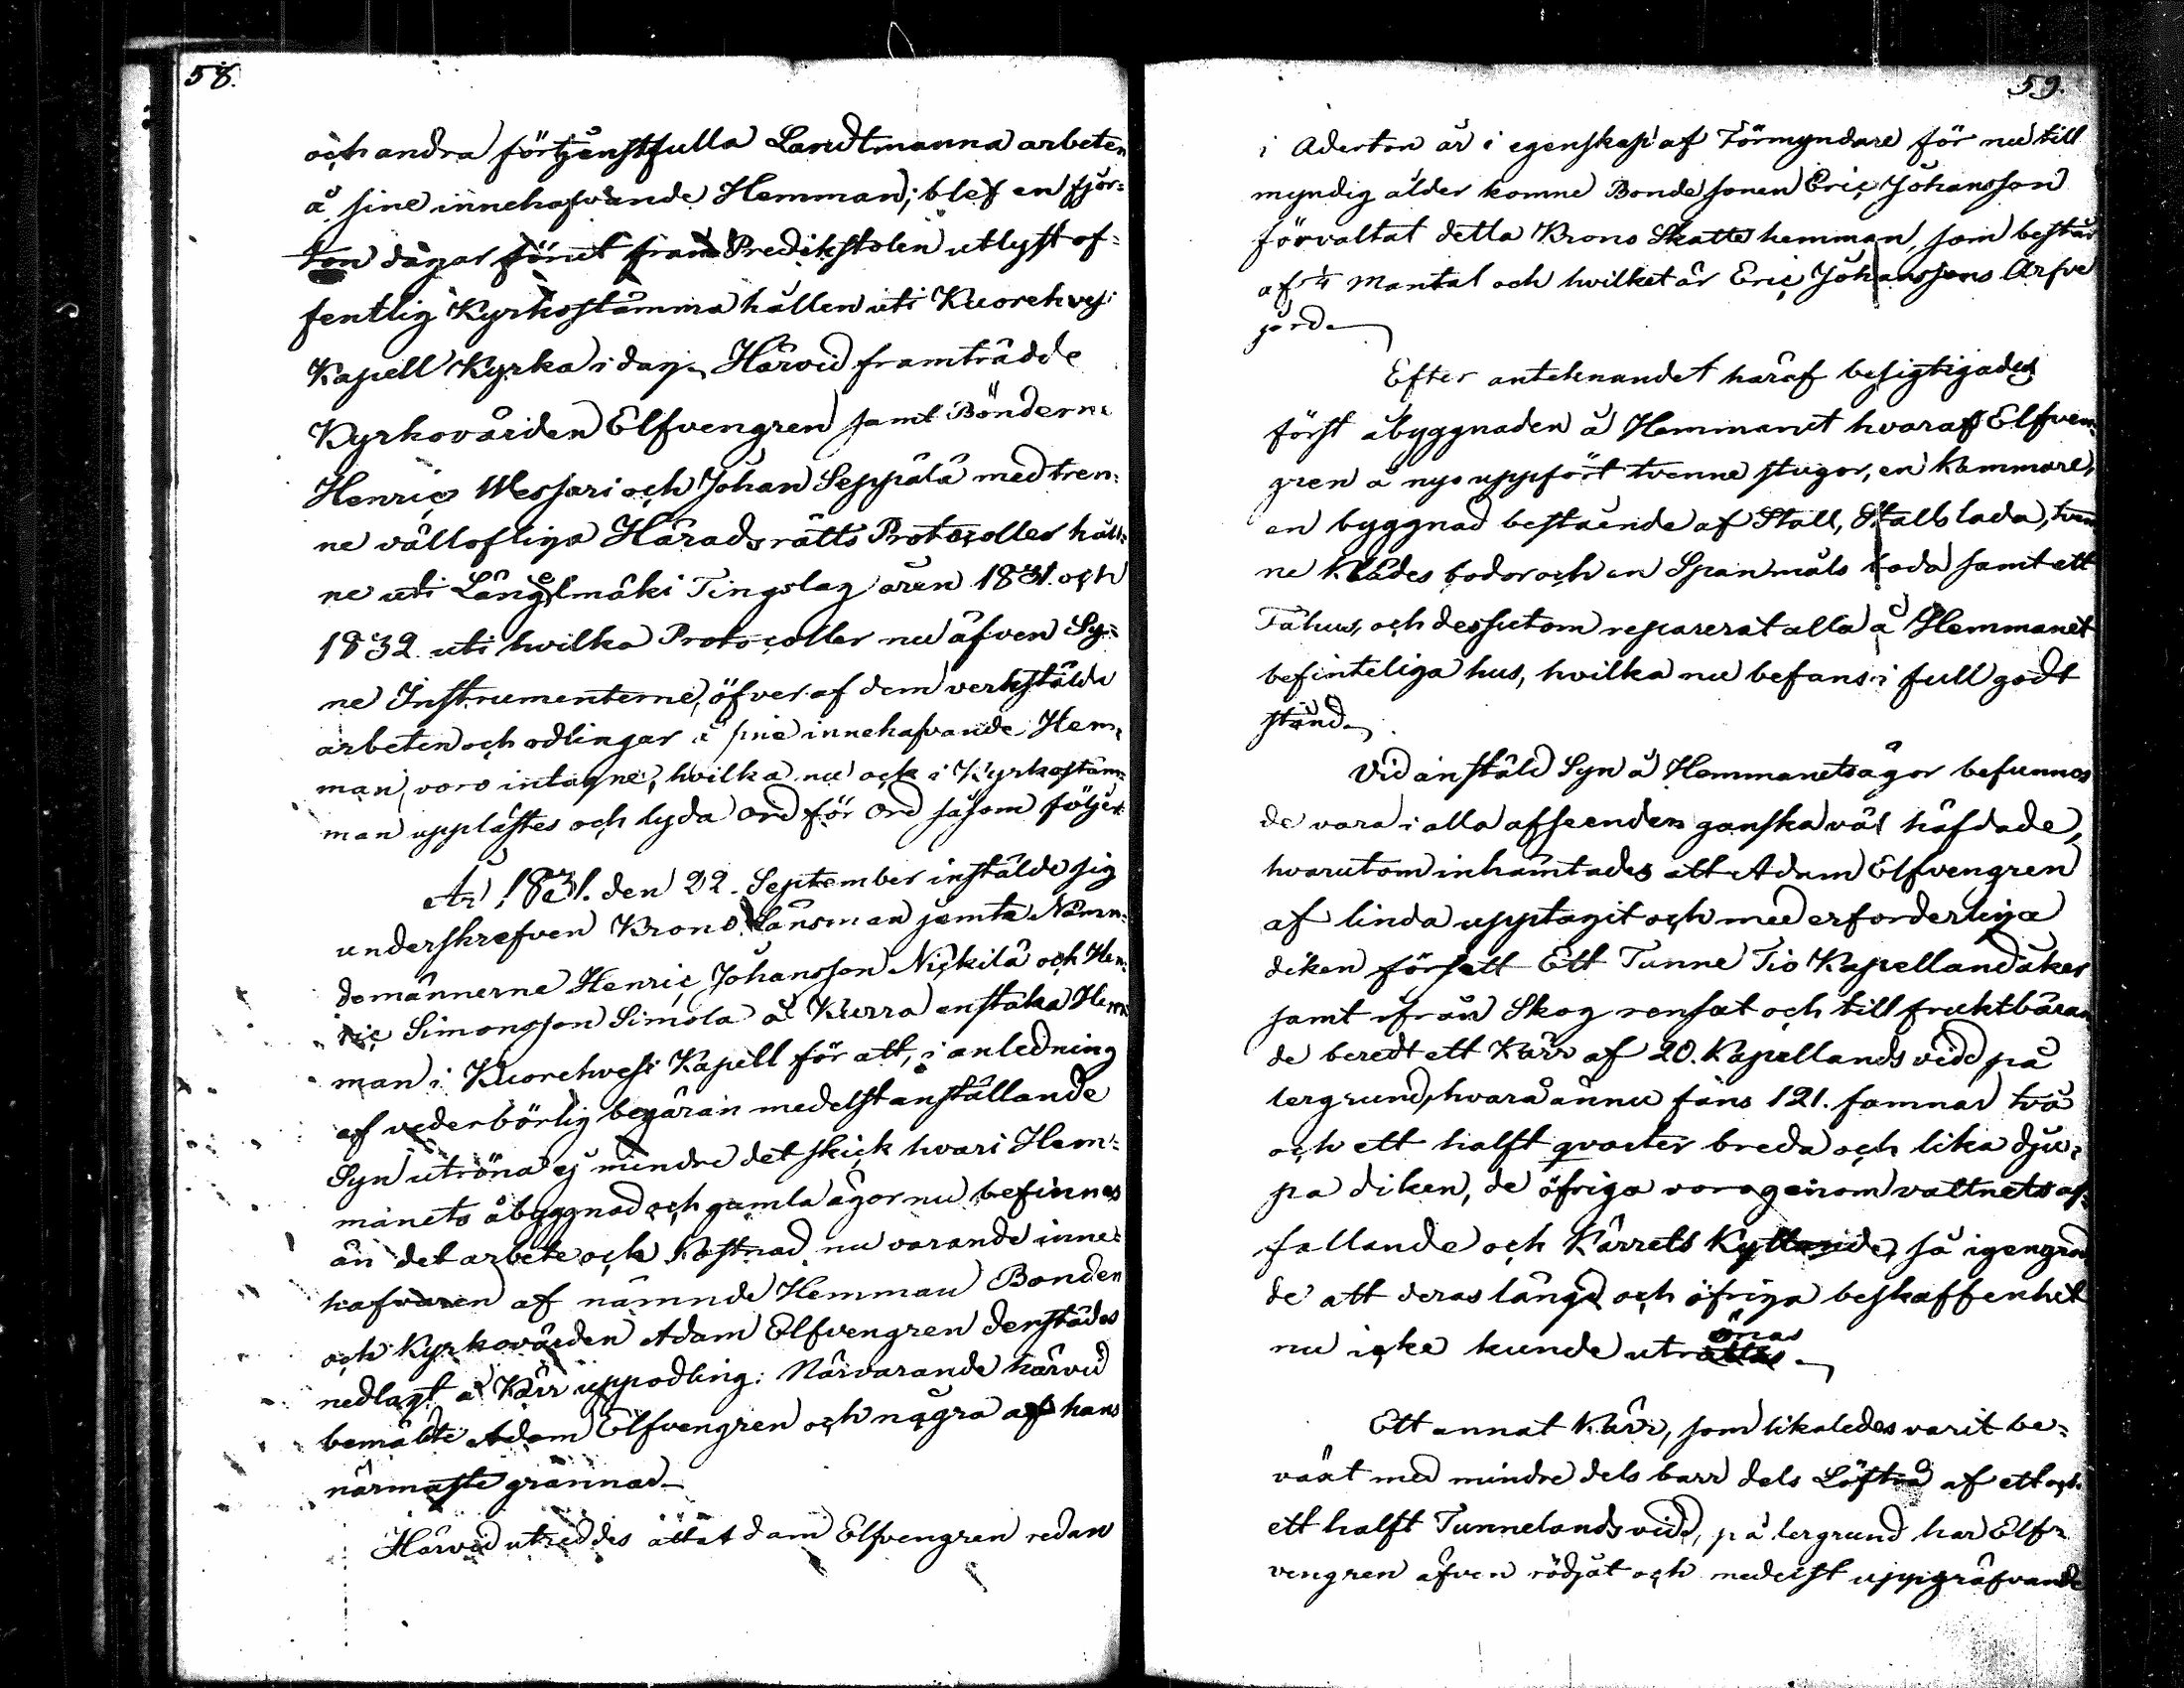 58.
och andra förtjenstfulla Landtmanna arbeten
å sine innehafvande Hemman; blef en fjor=
ton dagar förut från Predikstolen utlyst of=
fentlig Kyrkostämma hållen uti Kuorehvesi
Kapell Kyrka i dag. Härvid framträdde
Kyrkovärden Elfvengren samt Bönderne
Henric Messari och Johan Seppälä med tren=
ne vällofliga Häradsrätts Protocoller håll=
ne uti Längelmäki Tingslag åren 1831. och
1832. uti hvilka Protocoller nu äfven Sy=
ne Instrumenterne, öfver af dem verkstälde
arbeten och odlingar å sine innehafvande Hem=
man, voro intagne, hvilka nu ock i Kyrkostäm=
man upplästes och lyda ord för ord såsom följer:
År 1831. den 22. September instälde sig
underskrefven Krono Länsman jemte Nämn=
demännerne Henric Johansson Nickilä och Hen=
ric Simonsson Simola å Kurra enstaka Hem=
man i Kuorehvesi Kapell för att, i anledning
af vederbörlig begäran medelst anställande
Syn utröna ej mindre det skick hvari Hem=
manets åbyggnad och gamla ägor nu befinnes
än det arbete och kostnad nu varande inne=
hafvaren af nämnde Hemman Bonden
och Kyrkovärden Adam Elfvengren derstädes
nedlagt å Kärr uppodling. Närvarande härvid
bemälte Adam Elfvengren och några af hans
närmaste grannar.
Härvid utreddes att Adam Elfvengren redan
59.
i Aderton år i egenskap af Förmyndare för nu till
myndig ålder komne Bonde sonen Eric Johansson
förvaltat detta Krono Skatte hemman, som består
af 1/4 Mantal och hvilket är Eric Johanssons Arfve
jord.
Efter anteknandet häraf besigtigades
först åbyggnaden å Hemmanet hvaraf Elfven=
gren å nyo uppfört tvenne stugor, en Kammare,
en byggnad bestående af Stall, Stallslada, tven=
ne Klädes bodor och en Spanmåls boda samt ett
Fähus, och dessutom reparerat alla å Hemmanet
befinteliga hus, hvilka nu befans i full godt
stånd.
Vid anstäld Syn å Hemmanets ägor befunnos
de vara i alla afseenden ganska väl häfdade,
hvarutom inhämtades att Adam Elfvengren
af linda upptagit och med erforderliga
diken försett Ett Tunne Tio Kapelland åker
samt ifrån Skog rensat och till fruktbäran
de beredt ett Kärr af 20. Kapellands vidd på
lergrund, hvarå ännu fans 121. famnar två
och ett halft qvarter breda och lika dju=
pa diken, de öfriga voro genom vattnets af=
fallande och Kärrets Kyttande, så igengrod
de att deras längd och öfriga beskaffenhet
nu icke kunde utrönas.
Ett annat Kärr, som likaledes varit be=
växt med mindre dels barr dels Löfträ af ett och
ett halft Tunnelands vidd, på lergrund har Elf=
vengren äfven rödjat och medelst uppgräfvande